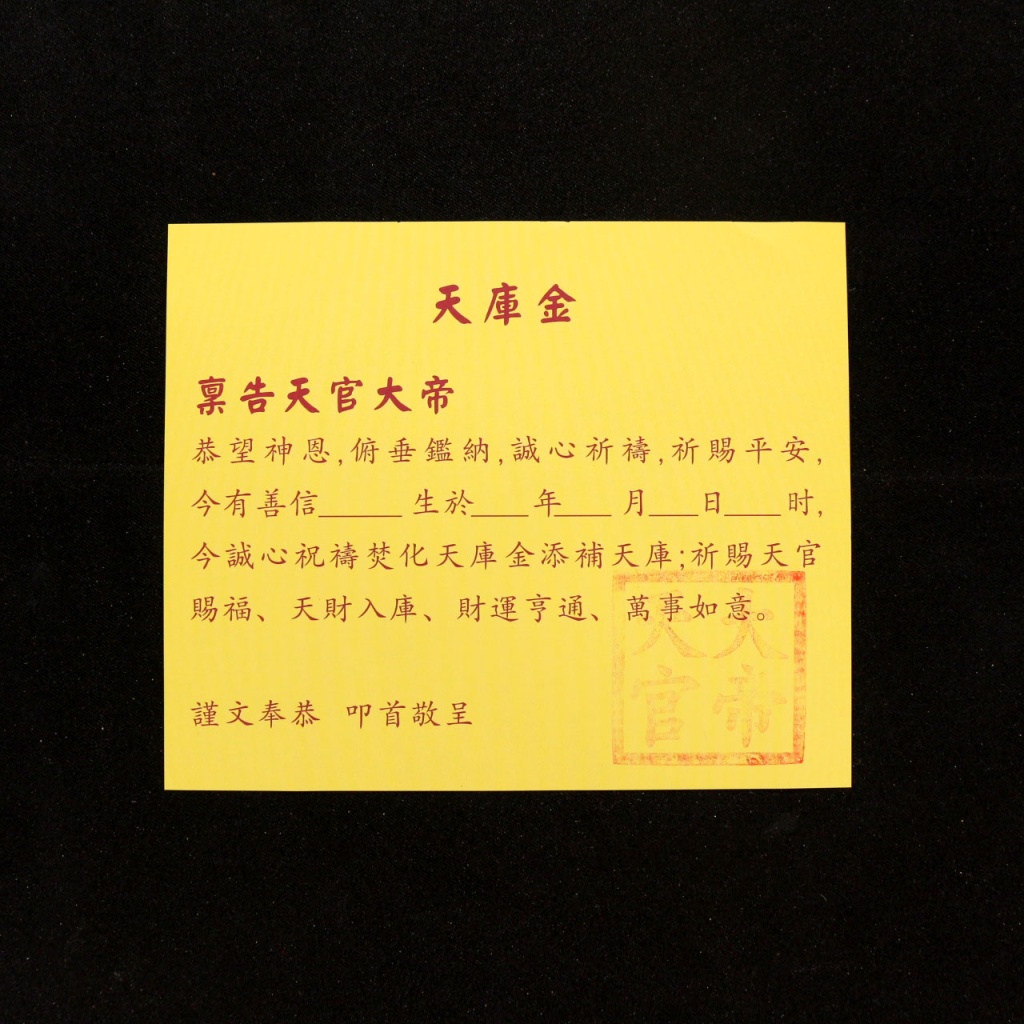 天庫金
禀告天官大帝
恭望神恩,俯垂鑑納,誠心祈禱,祈賜平安,
今有善信______ 生於____年____ 月____日____时,
今誠心祝禱焚化天庫金添補天庫;祈賜天官
賜福、天財入庫、財運亨通、萬事如意。
謹文奉恭 叩首敬呈
天大
官帝